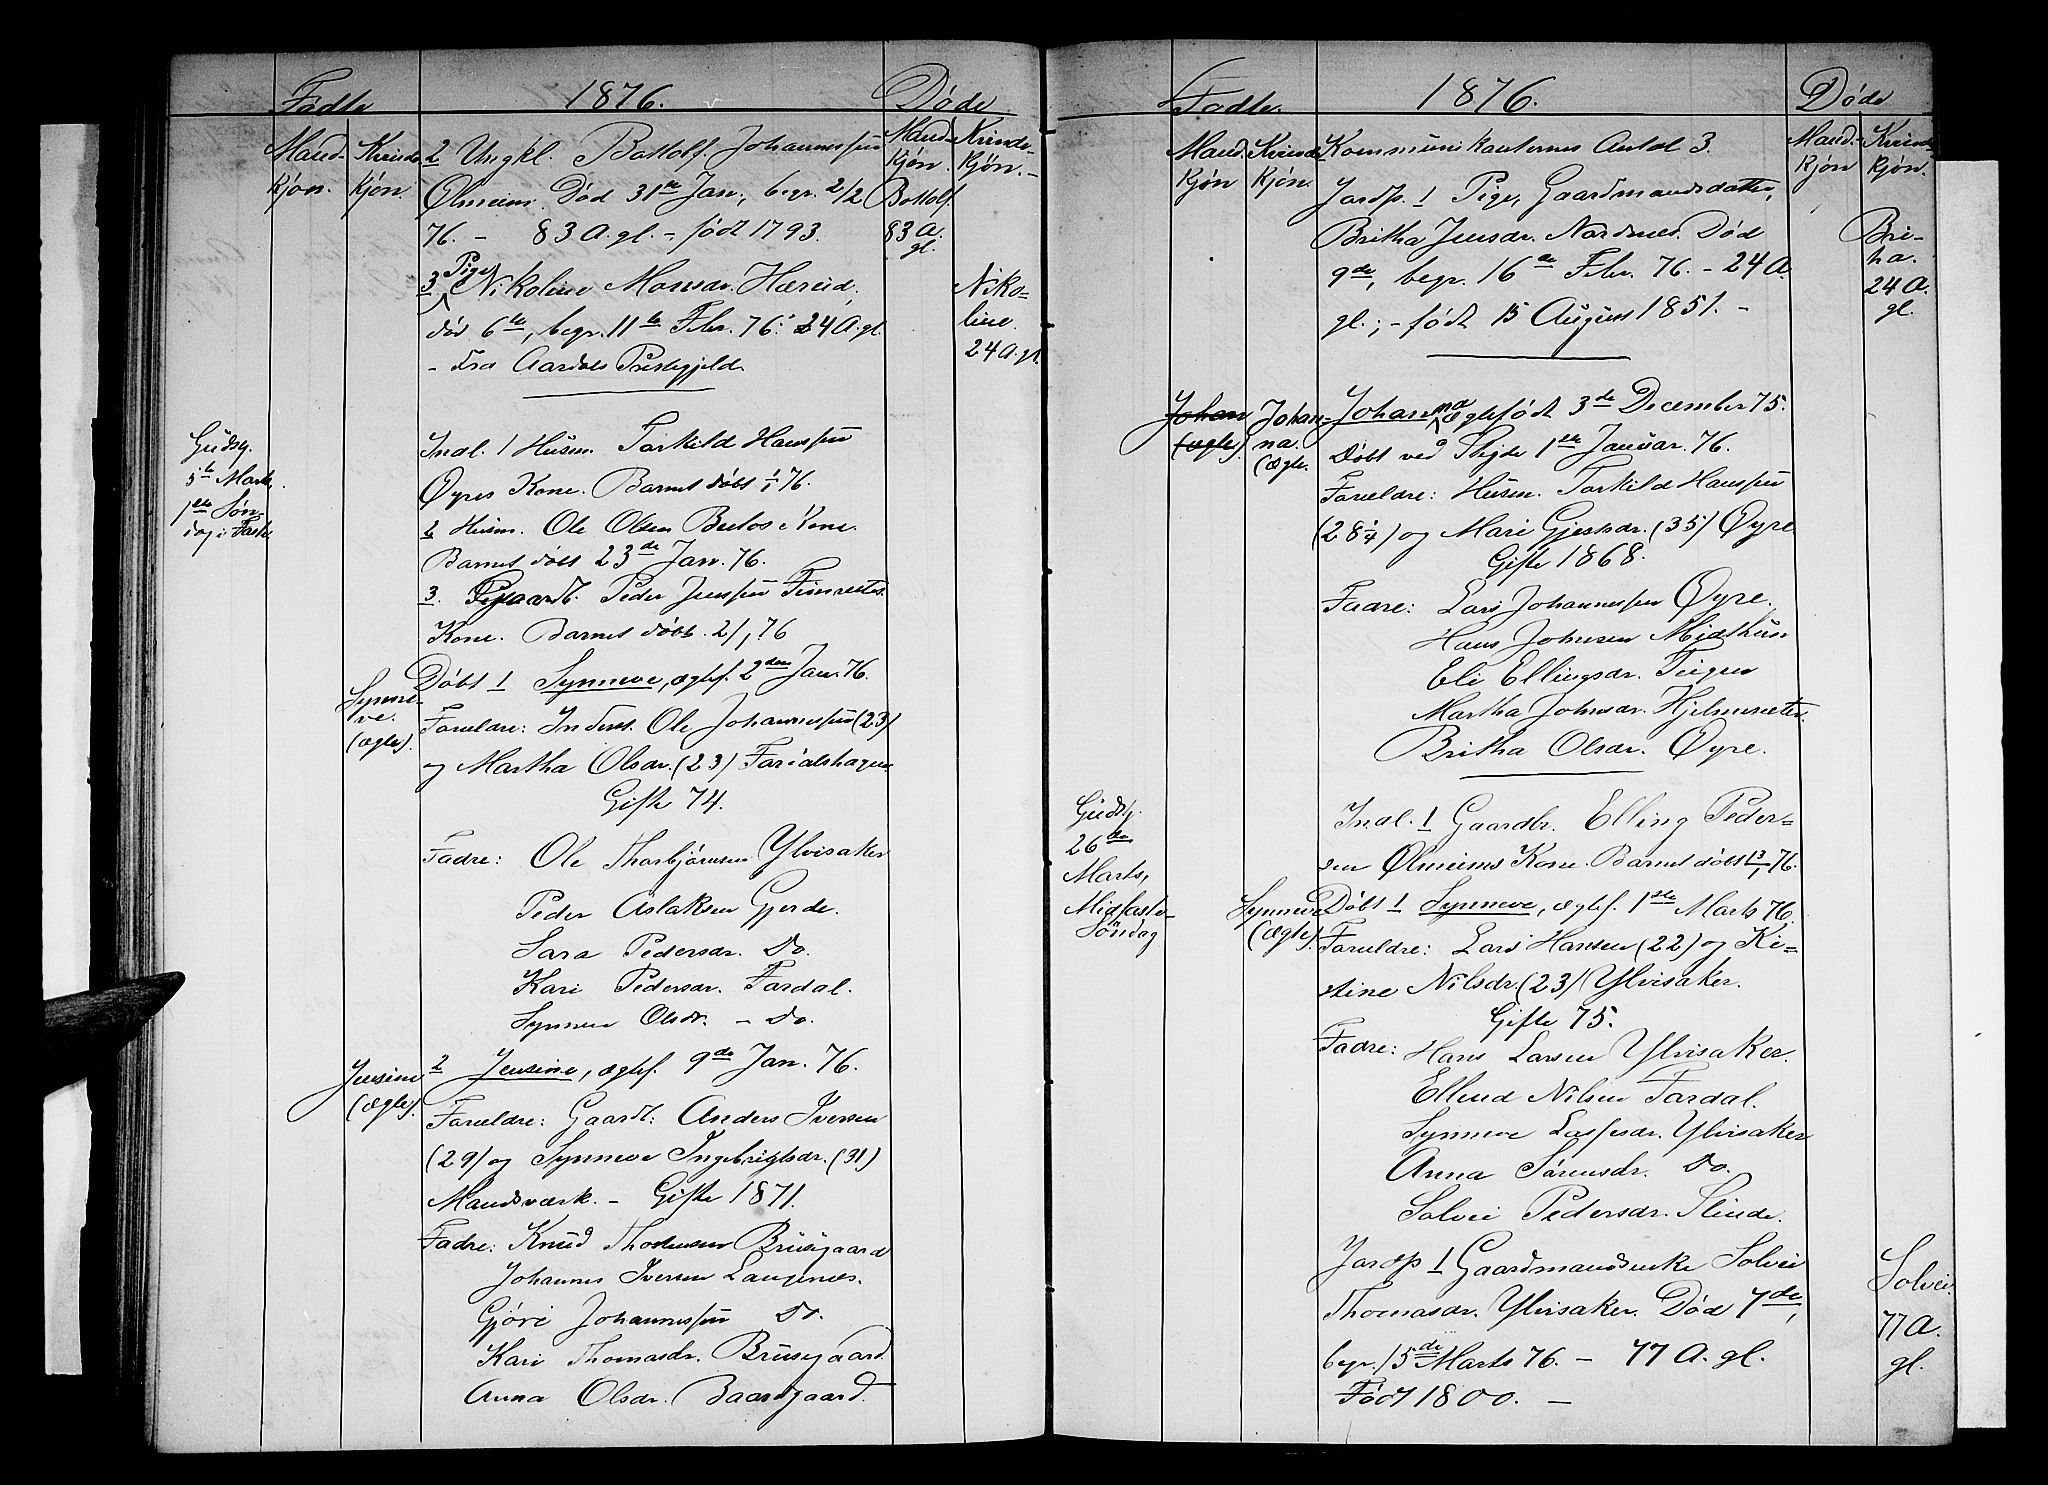 Födte
1876.
Døde
Mand-
kjøn.
Kvinde
kjön.
Mand-
kjøn.
Kvinde-
kjøn.-
2 Ungkl. Bottolf Johannessen
Ølmeim. Død 31te Jan., begr. 2/2
76. - 83 A. gl. - født 1793.
Bottolf.
83 A.
gl.
3 Pige Nikoline Monsdr. Hæreid,
död 6te, begr. 11te Febr. 76: 24 A. gl.
- Fra Aardals Præstegjeld.
Niko-
line.
24 A. gl.
Gudstj.
5te Marts.
1ste Søn-
dag i Faste
Indl. 1 Husm. Torkild Hanssen
Øyres Kone. Barnet døbt 1/1 76.
2 Husm. Ole Olsen Kone.
Barnet døbt 23de Jan. 76.
3. Peder Jenssen Fimreites
Kone. Barnet döbt. 2/1, 76
Synne-
ve.
(ægte).
Døbt 1 Synneve, ægtef. 2den Jan. 76.
Forældre: Inderst. Ole Johannessen (23)
og Martha Olsdr. (23) Fardalshagen
Gifte 74.
Fadre: Ole Thorbjørnsen Ylvisaker
Peder Aslaksen Gjerde.
Sara Pedersdr. Do.
Kari Pedersdr. Fardal.
Synneve Olsdr. - Do.
Jensine
(ægte).
2 Jensine, ægtef. 9de Jan. 76.
Forældre: Gaardt. Anders Iversen
(29) og Synneve Ingebrigtsdr. (31)
Mandsværk. - Gifte 1871.
Fadre: Knud Thomassen Brusegaard
Johannes Iversen Langenæs.
Gjøri Johannessen Do.
Kari Thomasdr. Brusegaard.
Anna Olsdr. Baardgaard.
Födte.
1876.
Døde
Mand.
kjøn
Kvinde
kjön.
Mand-
kjön
Kvinde-
kjøn.
Kommunikanternes Antal 3.
Jordp. 1 Pige, Gaardmandsdatter,
Britha Jensdr. Nordnes. Død
9de, begr. 16de Febr. 76. - 24 A.
gl.; - født 15 August 1851. -
Bri-
tha.
24 A.
gl.
Johan
(ægte).
Johan-
na.
(ægte.
Johanna ægtefödt 3de December 75.
Døbt ved Stedje 1ste Januar. 76.
Forældre: Husm. Torkild Hanssen
(28 1/4) og Mari Gjestsdr. (35) Øyre.
Gifte 1868.
Fadre: Lars Johannessen Øyre,
Hans Johnsen Midthun
Eli Ellingsdr. Teigen
Martha Johnsdr. Hjelmeseter.
Britha Olsdr. Øyre.
Gudstj.
26de
Marts,
Midfaste-
Söndag
Indl. 1 Gaardbr. Elling Peder=
sen Ølmeims Kone. Barnet döbt 13/1, 76.
Synneve
(ægte).
Døbt 1 Synneve, ægtef. 1ste Marts 76.
Forældre: Lars Hansen (22) og Ki=
stine Nilsdr. (23) Ylvisaker.
Gifte 75.
Fadre: Hans Larsen Ylvisaker.
Ellend Nilsen Fardal.
Synneve Lassesdr. Ylvisaker
Anna Sørensdr. Do.
Solvei Pedersdr. Slinde.
Jordp 1 Gaardmandsenke Solvei
Thomasdr. Ylvisaker. Død 7de,
begr. 15de Marts 76. - 77 A. gl.
Född 1800. -
Solvei.
77 A.
gl.